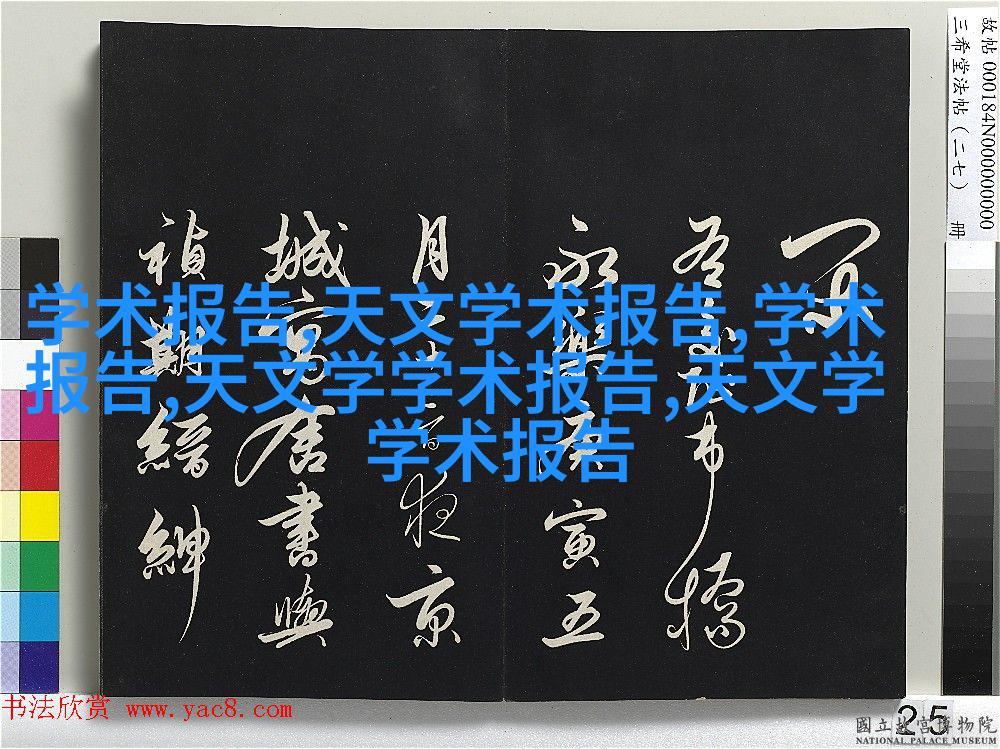 学术报告,天文学术报告,学术
报告,天文学学术报告,天文学
学术报告
永樂庚寅五
月 夜京
城寓舍書與
禎期縉紳
故帖 000184N000000000
三希堂法帖(二七) 册
书法欣赏 www.yac8.com
25
國立故宮博物院
NATIONAL PALACE MUSEUM